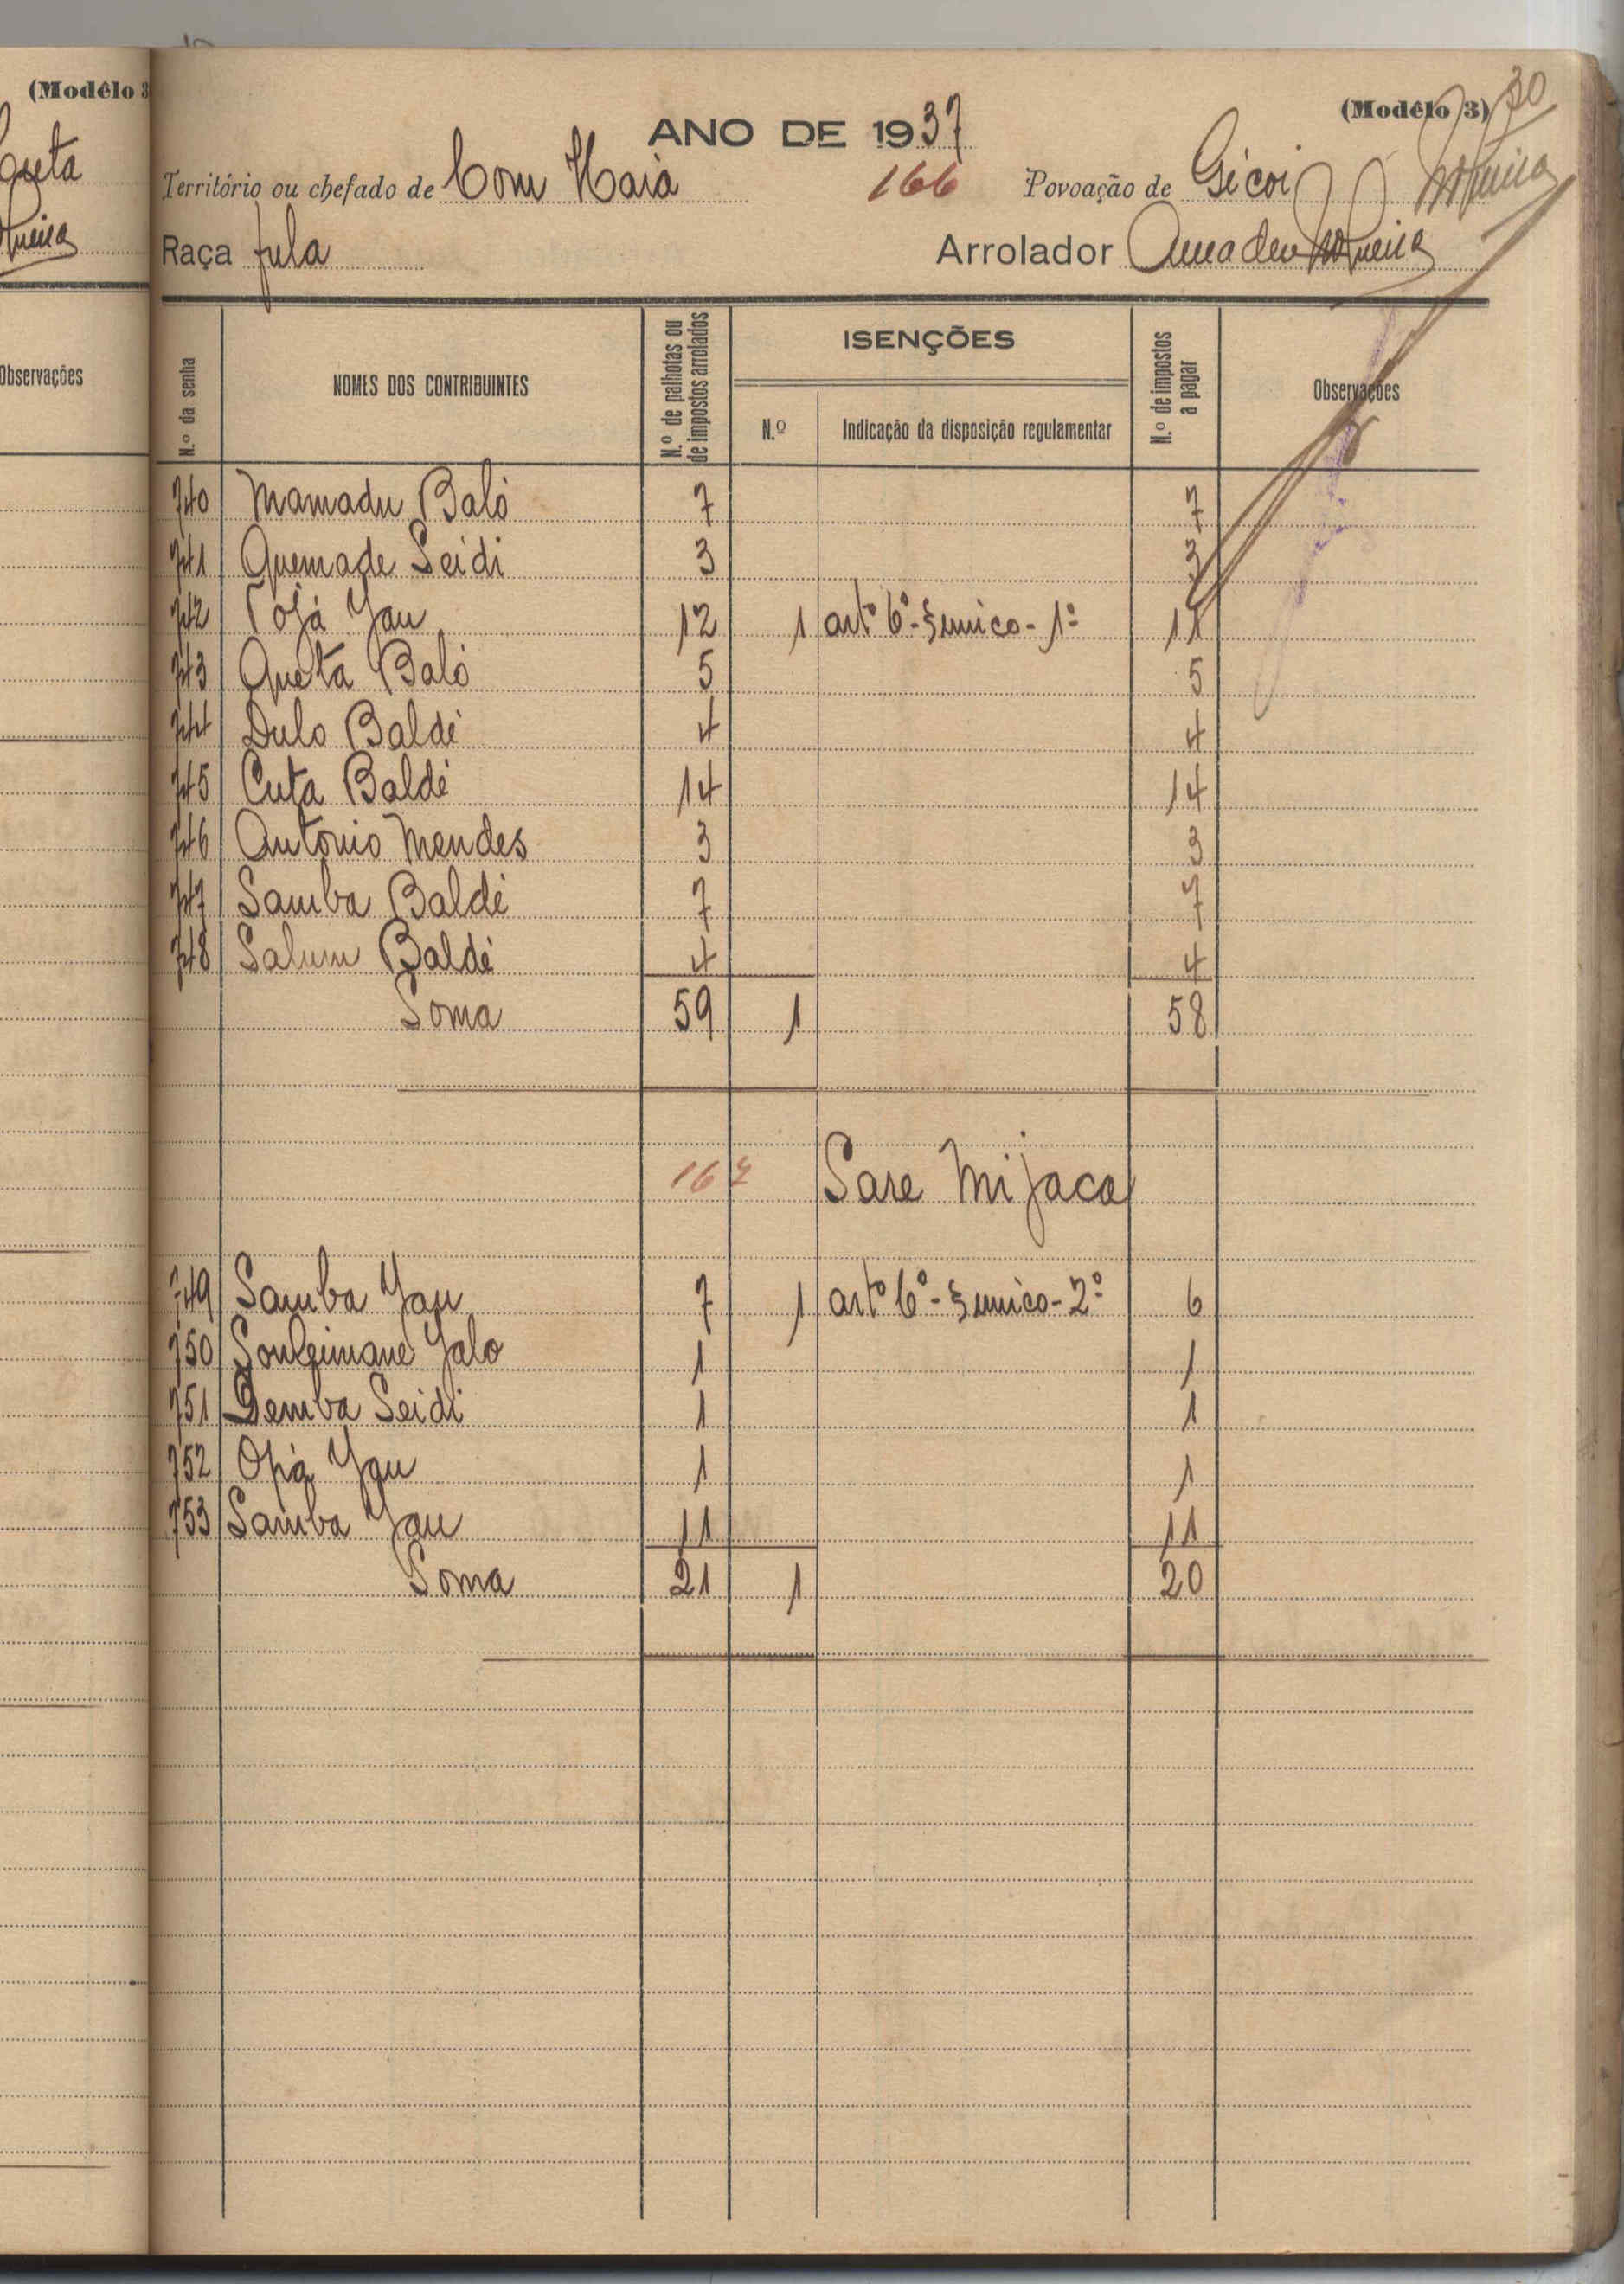 (Modêlo 3
queta
Observações
30
(Modêlo 3)
ANO DE 1937
Território ou chefado de Com Haia 166 Povoação de Gicoi
Raça fula Arrolador Amadeu
N.º da senha
NOMES DOS CONTRIBUINTES
N.º de palhotas ou de impostos arrolados
ISENÇÕES
N.º
Indicação da disposição regulamentar
N.º de impostos a pagar
Observações
740 Mamadu Baló 7 7
741 Quemade Seidi 3 3
742 Yau 12 1 artº 6º - § unico - 1º 11
743 Queta Baló 5 5
744 Dulo Baldé 4 4
745 Cuta Baldé 14 14
746 Antonio Mendes 3 3
747 Samba Baldé 7 7
748 Salum Baldé 4 4
Soma 59 1 58
167 Sare Mijaca
749 Samba Yau 7 1 artº 6º - § unico - 2º 6
750 Souleimane Jalo 1 1
751 Demba Seidi 1 1
752 Opá Yau 1 1
753 Samba Yau 11 11
Soma 21 1 20